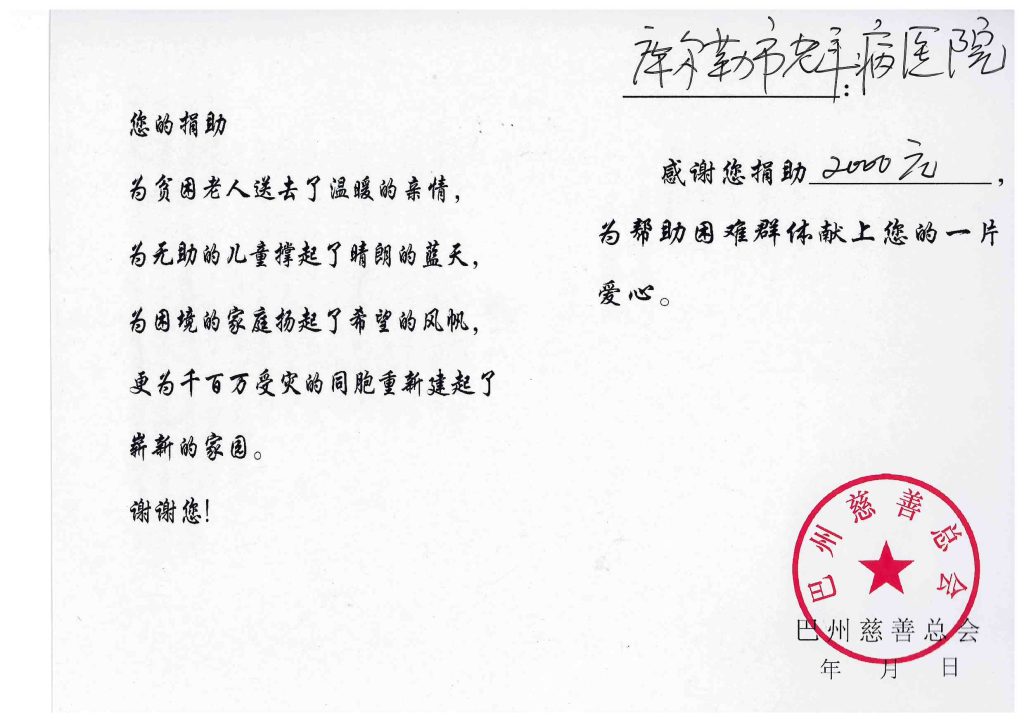 您的捐助
为贫困老人送去了温暖的亲情，
为无助的儿童撑起了晴朗的蓝天，
为困境的家庭扬起了希望的风帆，
更为千百万受灾的同胞重新建起了
崭新的家园。
谢谢您！
库尔勒市老年病医院：
感谢您捐助2000元，
为帮助困难群体献上您的一片
爱心。
巴州慈善总会
巴州慈善总会
年 月 日